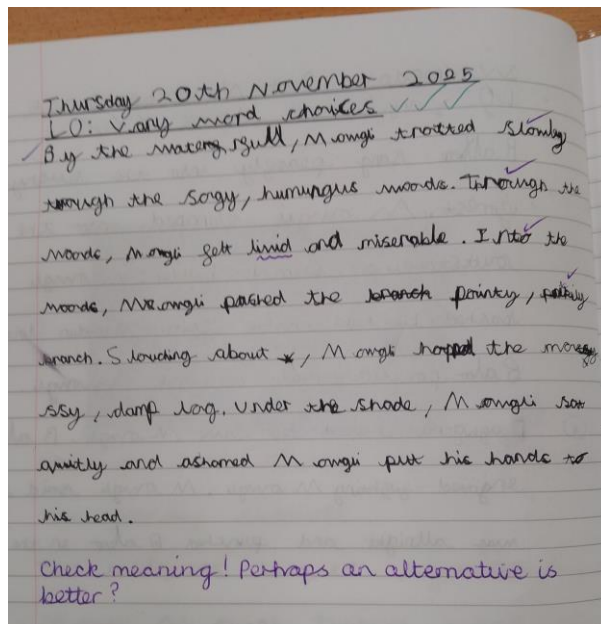 Thursday 20th November 2025
LO: Vary word choices
By the watery gull, Mowgli trotted slowly
through the sogy, humungus woods. Through the
woods, Mowgli felt livid and miserable. Into the
woods, Mowgli pushed the pointy,
branch. Slouching about, Mowgli hopped the
ssy, damp log. Under the shade, Mowgli sat
quitly and ashamed Mowgli put his hands to
his head.
Check meaning! Perhaps an alternative is
better?